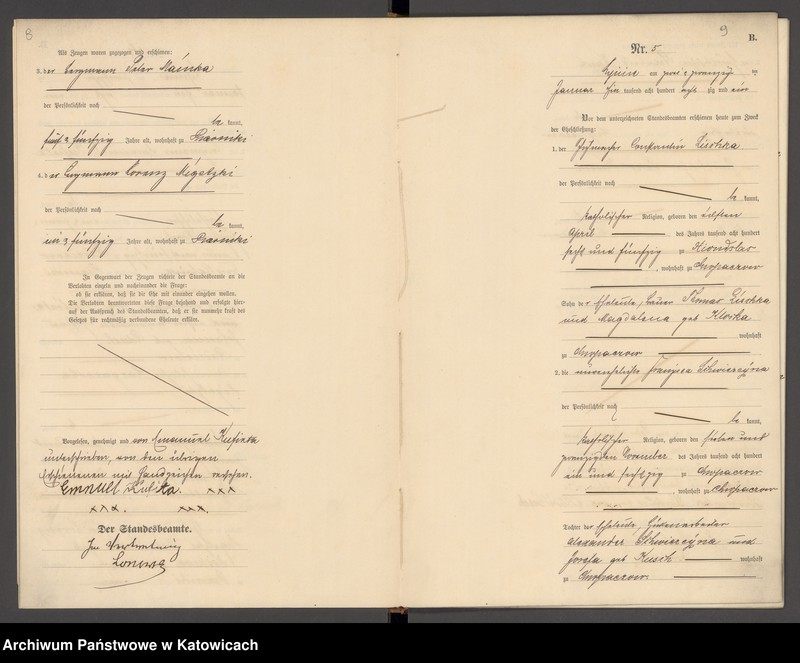 8
Als Zeugen waren zugezogen und erschienen:
3. der Bergmann Peter Mainka
der Persönlichkeit nach
be kannt,
fünf & fünfzig Jahre alt, wohnhaft zu
4. der Bergmann Lorenz
der Persönlichkeit nach
be kannt,
vier & fünfzig Jahre alt, wohnhaft zu
In Gegenwart der Zeugen richtete der Standesbeamte an die
Verlobten einzeln und nacheinander die Frage:
ob sie erklären, daß sie die Ehe mit einander eingehen wollen.
Die Verlobten beantworteten diese Frage bejahend und erfolgte hier-
auf der Ausspruch des Standesbeamten, daß er sie nunmehr kraft des
Gesetzes für rechtmäßig verbundene Eheleute erkläre.
Vorgelesen, genehmigt und von Emanuel
unterschrieben, von den übrigen
Erschienenen mit Handzeichen versehen.
xxx
xxx. xxx.
Der Standesbeamte.
In Vertretung
9
B.
Nr. 5
am zwei & zwanzig
Januar tausend acht hundert acht zig und ein
Vor dem unterzeichneten Standesbeamten erschienen heute zum Zweck
der Eheschließung:
1. der Constantin Lischka
der Persönlichkeit nach
be kannt,
katholischer Religion, geboren den elften
April des Jahres tausend acht hundert
sechs und fünfzig zu
, wohnhaft zu Chropaczow
Sohn der Eheleute, Bauer Thomas Lischka
und Magdalena geb Kloska
wohnhaft
zu Chropaczow
2. die unverehelichte Franziska Skwierczyna
der Persönlichkeit nach
be kannt,
katholischer Religion, geboren den sieben und
zwanzigsten November des Jahres tausend acht hundert
ein und sechszig zu Chropaczow
, wohnhaft zu Chropaczow
Tochter der Eheleute, Hüttenarbeiter
Alexander Skwierczyna und
Josefa geb Kusch wohnhaft
zu Chropaczow
Archiwum Państwowe w Katowicach